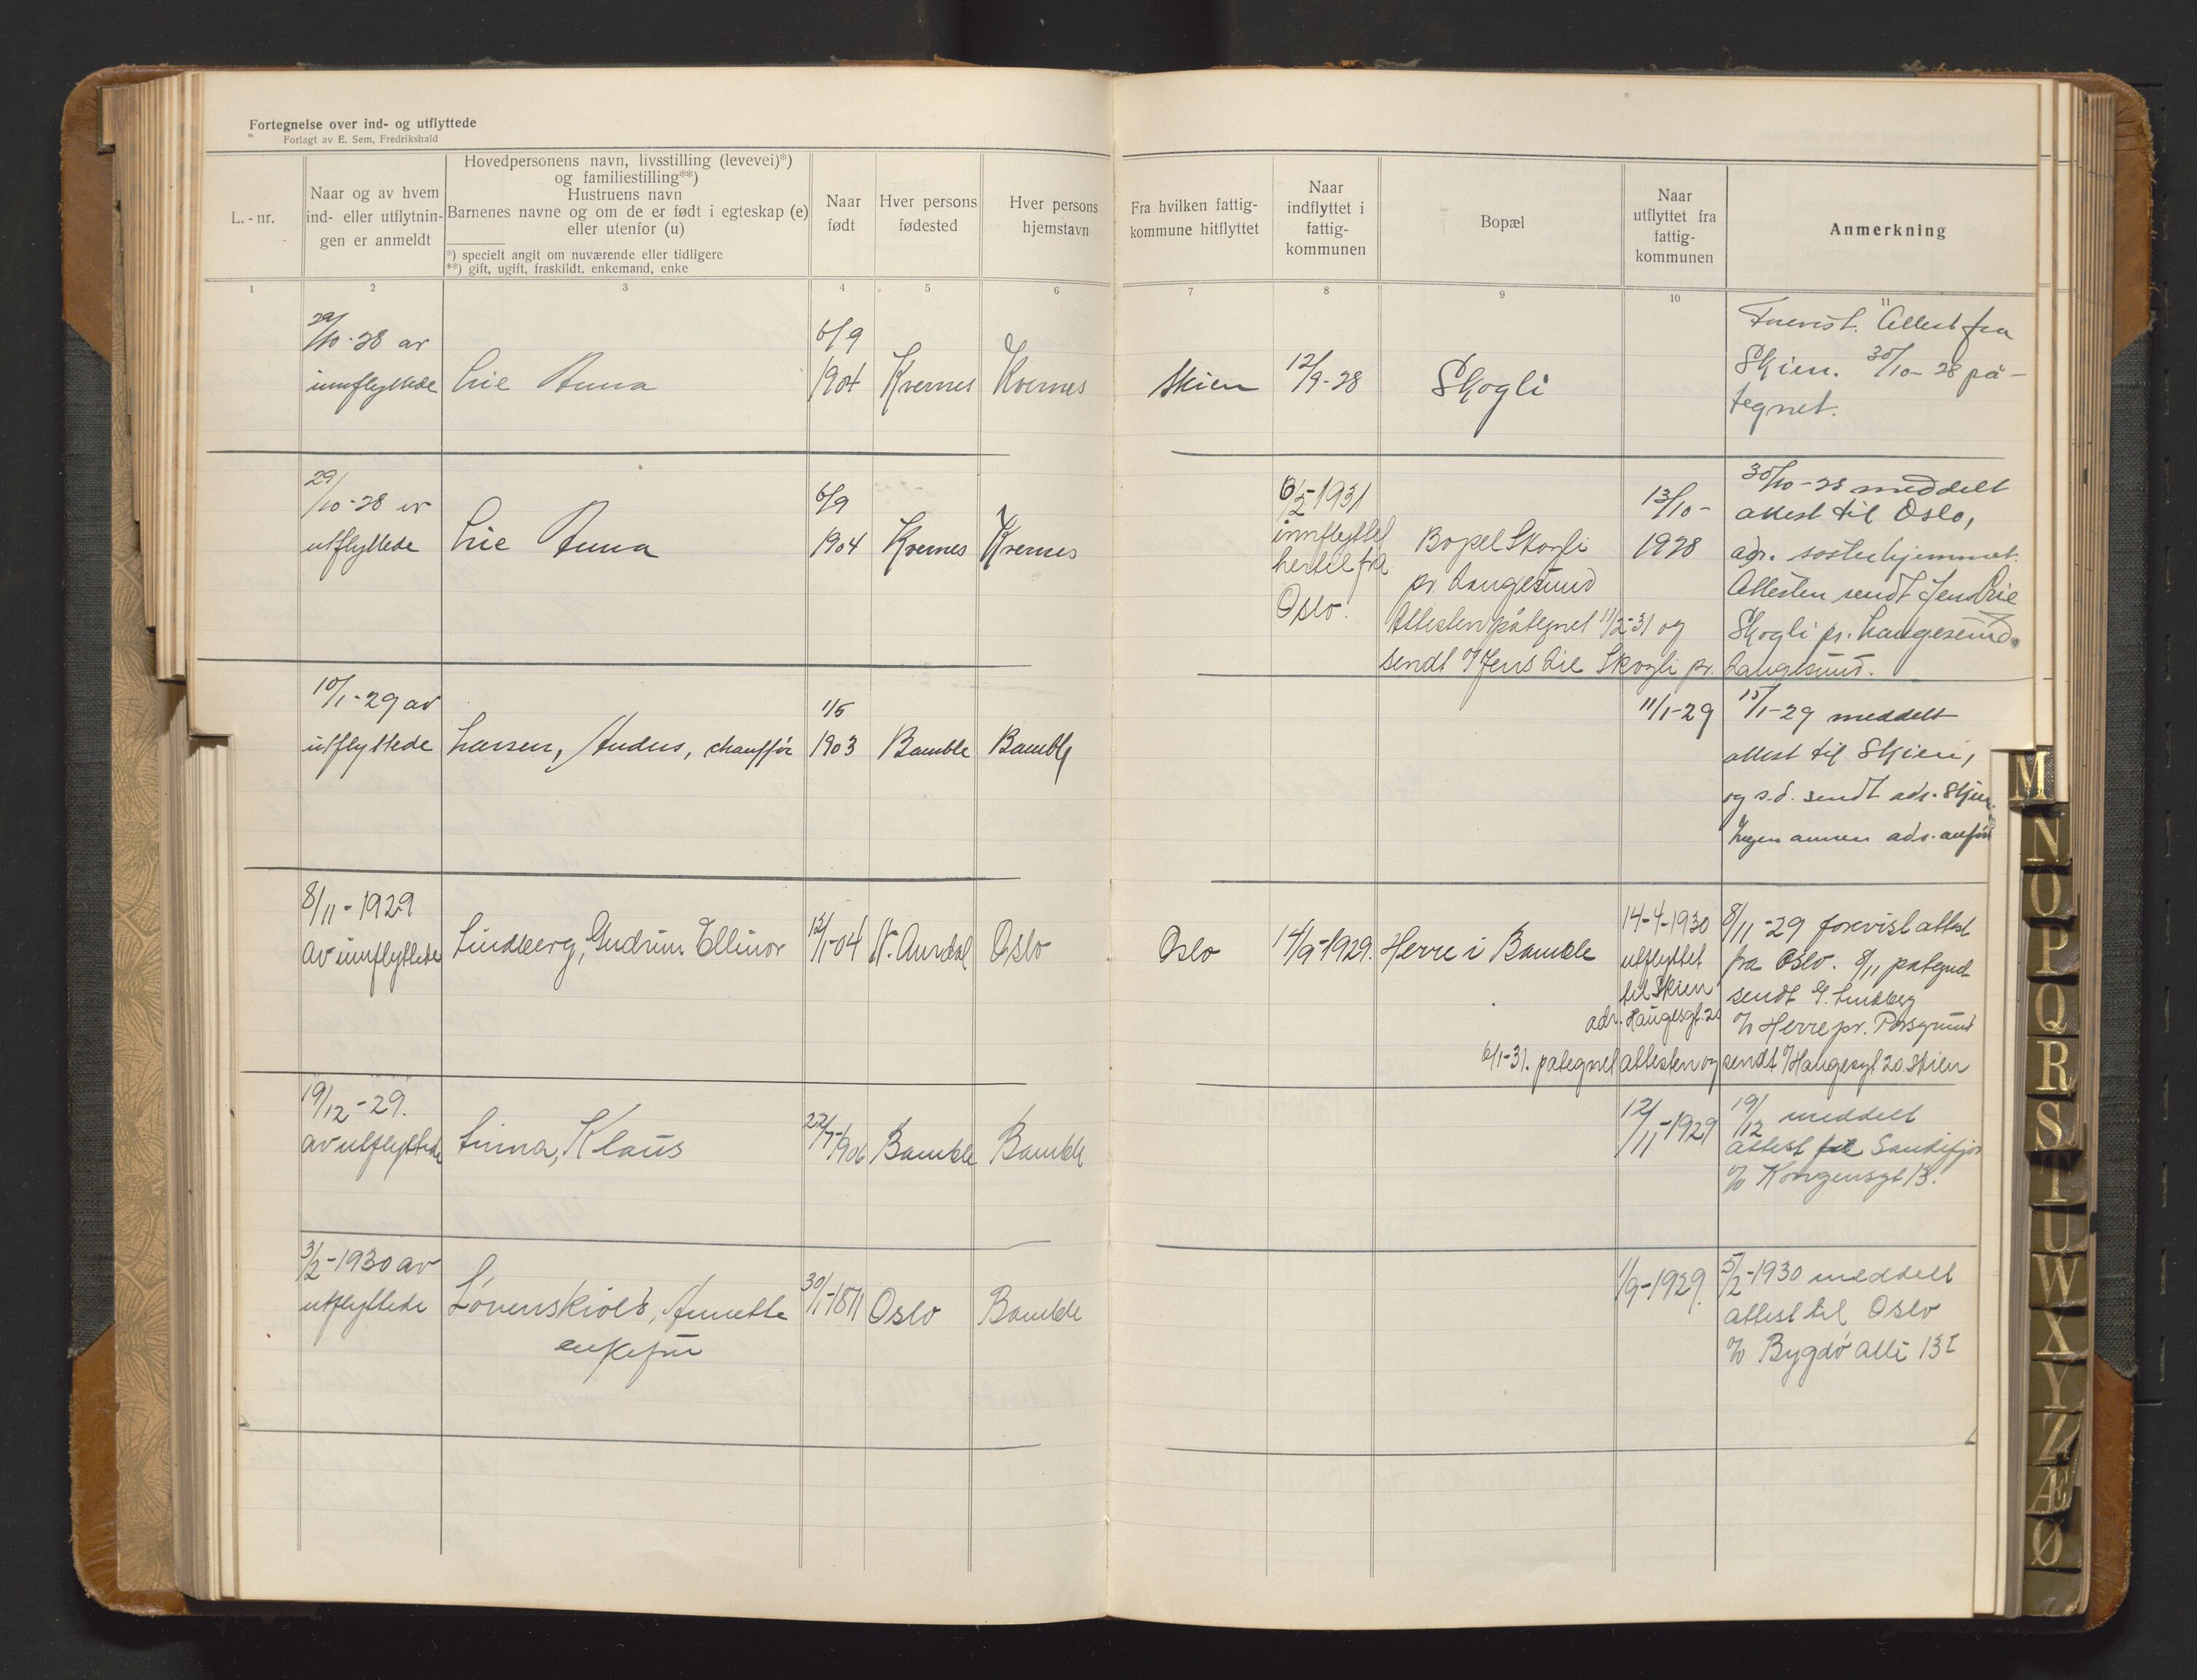 Fortegnelse over ind- og utflyttede
Forlagt av E. Sem, Fredrikshald
L.-nr.
Naar og av hvem
ind- eller utflytnin-
gen er anmeldt
Hovedpersonens navn, livsstilling (levevei)*)
og familiestilling**)
Hustruens navn
Barnenes navne og om de er født i egteskap (e)
eller utenfor (u)
*) specielt angit om nuværende eller tidligere
**) gift, ugift, fraskildt. enkemand, enke
Naar
født
Hver persons
fødested
Hver persons
hjemstavn
Fra hvilken fattig-
kommune hitflyttet
Naar
indflyttet i
fattig-
kommunen
Bopæl
Naar
utflyttet fra
fattig-
kommunen
Anmerkning
1 2 3 4 5 6 7 8 9 10 11
29/10-28 av
innflyttede
Lie Anna
6/9
1904
Kvernes
Kvernes
Skien
12/9-28
Skogli
Forevist. Attest fra
Skien. 30/10-28 på-
tegnet.
29/10-28 av
utflyttede
Lie Anna
6/9
1904
Kvernes
Kvernes
6/2-1931
innflyttet
hertil fra
Oslo.
Bopel Skogli
pr. Langesund
Attesten påtegnet 11/2-31 og
sendt % Jens Lie Skogli pr. Langesund.
13/10-
1928
30/10-28 meddelt
attest til Oslo,
adr. søsterhjemmet.
Attesten sendt Jens Lie
Skogli pr. Langesund.
10/1-29 av
utflyttede
Larsen, Anders, chauffør
1/5
1903
Bamble
Bamble
11/1-29
15/1-29 meddelt
attest til Skien,
og s.d. sendt adr. Skien.
Ingen annen adr. anført
8/11-1929
av innflyttede
Lindberg, Gudrun Ellinor
12/1-04
N. Aurdal
Oslo
Oslo
14/9-1929.
Herre i Bamble
14-4-1930
utflyttet
til Skien
adr. Haugesgt. 20
8/11-29 forevist attest
fra Oslo. 8/11 påtegnet
sendt G. Lindberg
% Herre pr. Porsgrund
6/1-31. påtegnet attesten og sendt % Haugesgt 20 Skien
19/12-29.
av utflyttede
Linna, Klaus
22/7-1906
Bamble
Bamble
12/11-1929
19/12 meddelt
attest til Sandefjor
% Kongensgt 13.
3/2-1930 av
utflyttede
Løvenskiold, Annette
enkefru
30/1-1871
Oslo
Bamble
1/9-1929.
5/2-1930 meddelt
attest til Oslo
% Bygdø alle 13 I
M
N
O
P
Q
R
S
T
U
W
X
Y
Z
Æ
Ø